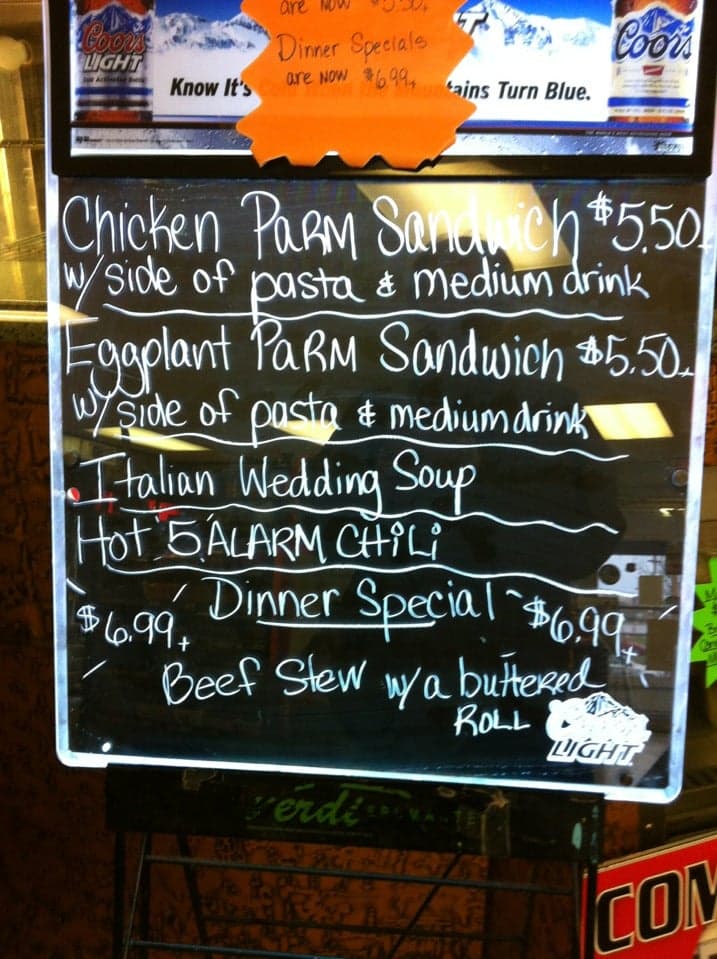 are now $5.50+
Dinner Specials
are now $6.99+
Coors
LIGHT
Know It's
tains Turn Blue.
Coors
Chicken PaRM Sandwich $5.50+
w/ side of pasta & medium drink
Eggplant PaRM Sandwich $5.50+
w/ side of pasta & medium drink
Italian Wedding Soup
Hot 5 ALARM CHiLi
$6.99+ Dinner Special $6.99+
Beef Stew w/ a butteRed
ROLL
LIGHT
Verdi
COM